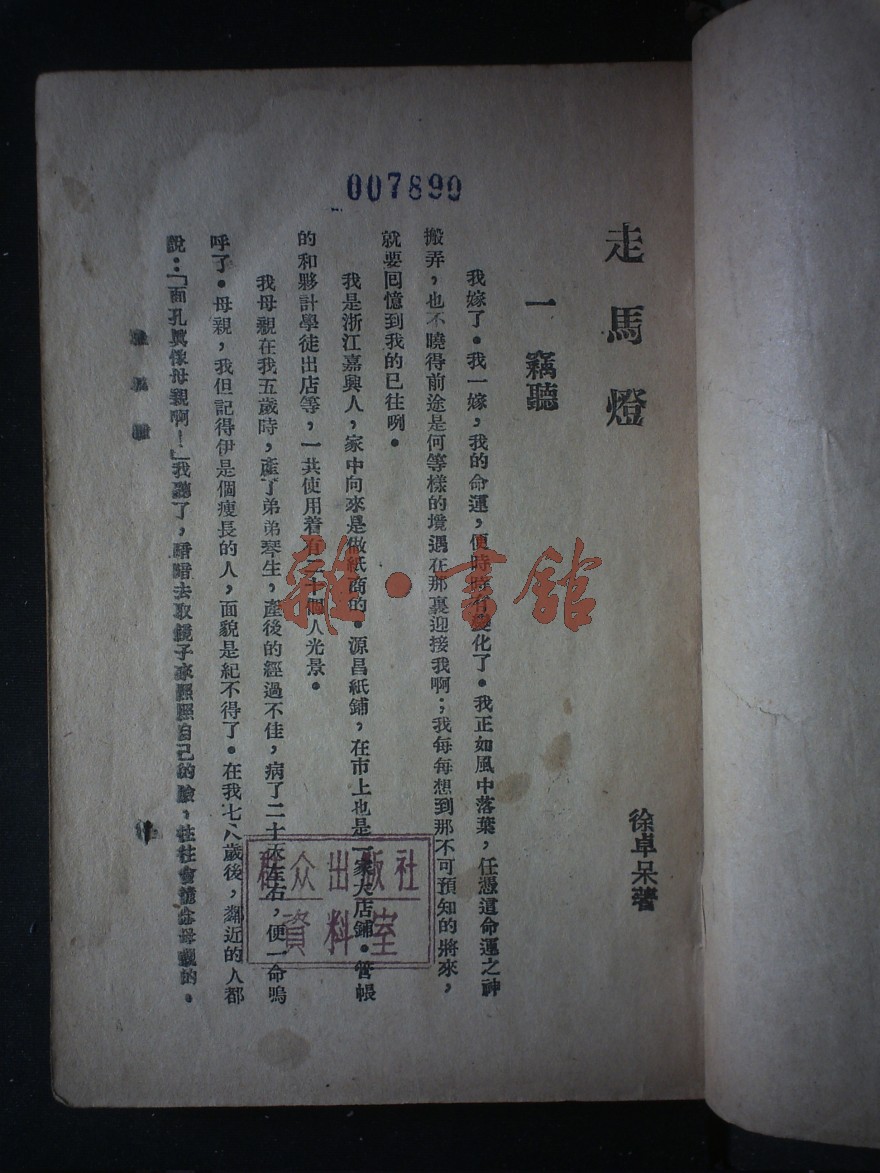 007890
走馬燈
徐卓呆著
一　竊聽
我嫁了。我一嫁，我的命運，便時時有變化了。我正如風中落葉，任憑這命運之神
搬弄，也不曉得前途是何等樣的境遇在那裏迎接我啊；我每每想到那不可預知的將來，
就要回憶到我的已往咧。
我是浙江嘉興人，家中向來是做紙商的。源昌紙鋪，在市上也是一家大店鋪。管帳
的和夥計學徒出店等，一共使用着有二十個人光景。
我母親在我五歲時，產了弟弟琴生，產後的經過不佳，病了二十天左右，便一命嗚
呼了。母親，我但記得伊是個瘦長的人，面貌是紀不得了。在我七八歲後，鄰近的人都
說：「面孔眞像母親啊！」我聽了，暗暗去取鏡子來照照自己的臉，往往會記念母親的。
走馬燈
雜·書館
群众出版社
資料室